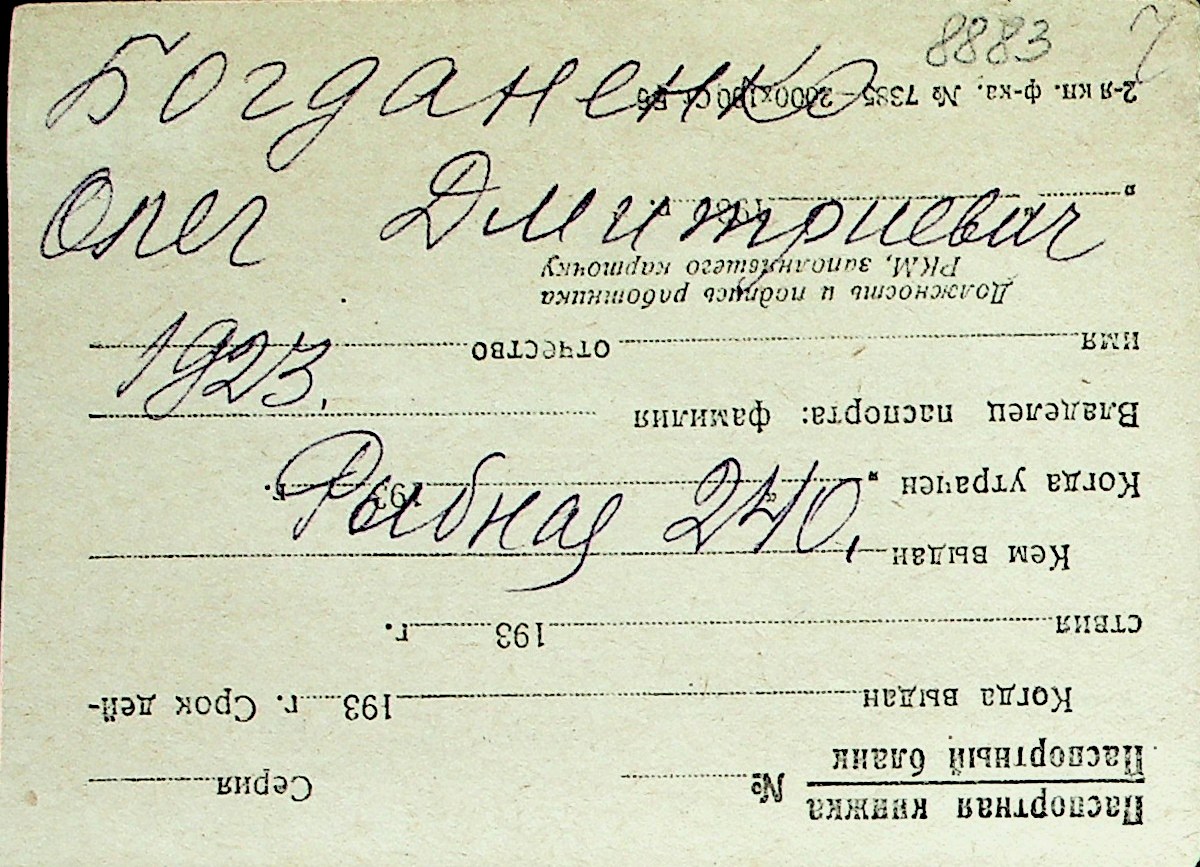 8883
Богданенко
Олег Дмитриевич
1923.
Рыбная 240,
Паспортная книжка
Паспортный бланк
№ Серия
Когда выдан 193 г. Срок дей-
ствия 193 г.
Кем выдан
Когда утрачен „ “ 193 г.
Владелец паспорта: фамилия
имя отчество
Должность и подпись работника
РКМ, заполнявшего карточку
„ “ 193 г.
2-я кн. ф-ка. № 7385—2000×100